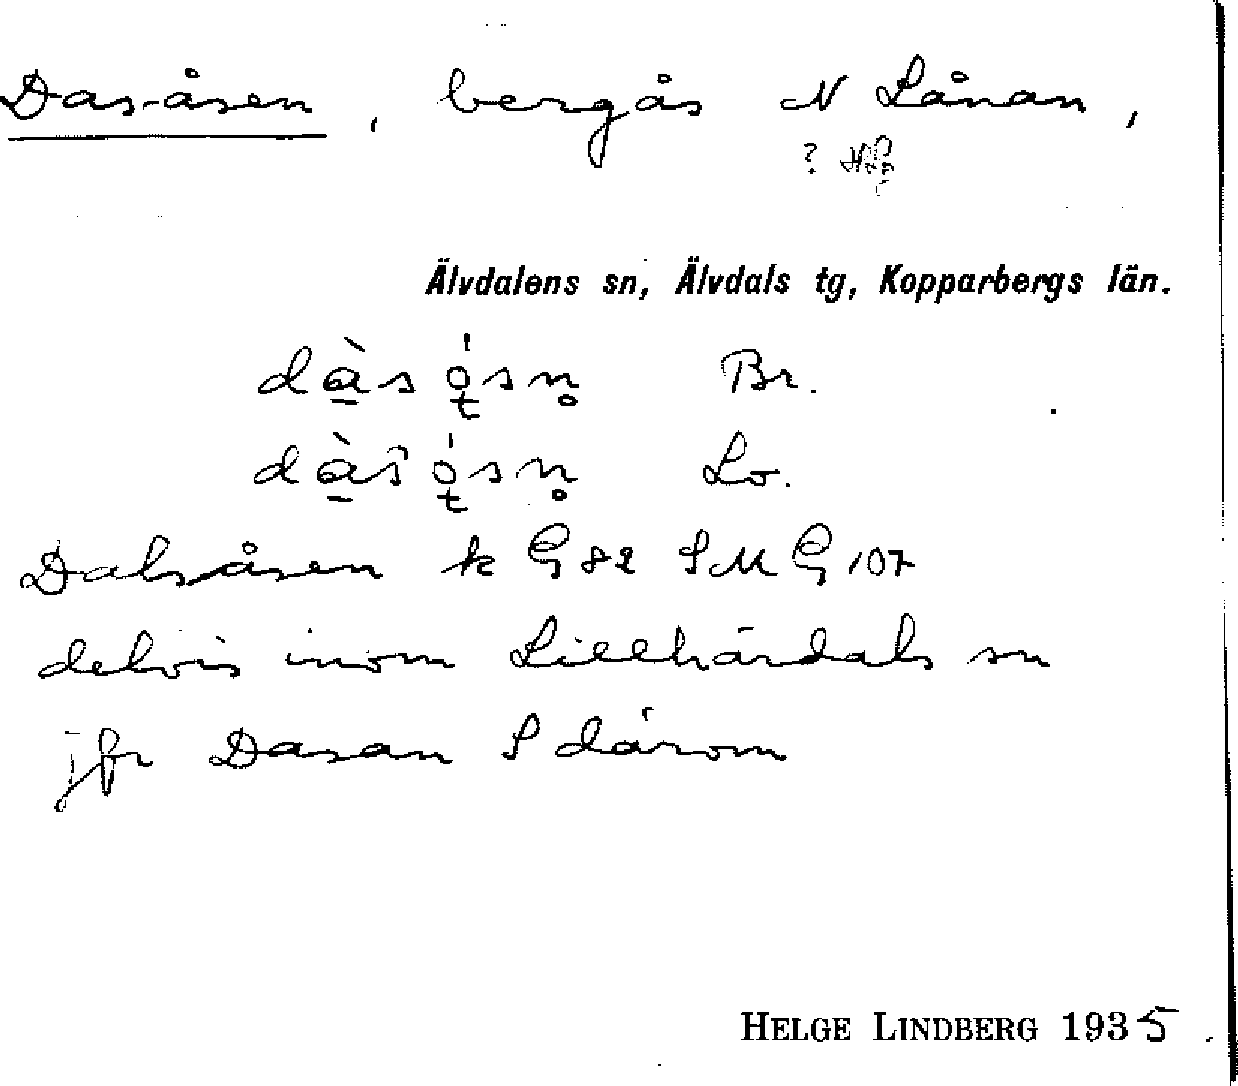 Das-åsen, bergås N Lånan,
?
Älvdalens sn, Älvdals tg, Kopparbergs län.
dàs ǫ́sn̥ Br.
dàs ǫ́sn̥ Lo.
Dalsåsen k G 82 SMG 107
delvis inom Lillhärdals sn
jfr Dasan S därom
HELGE LINDBERG 1935.